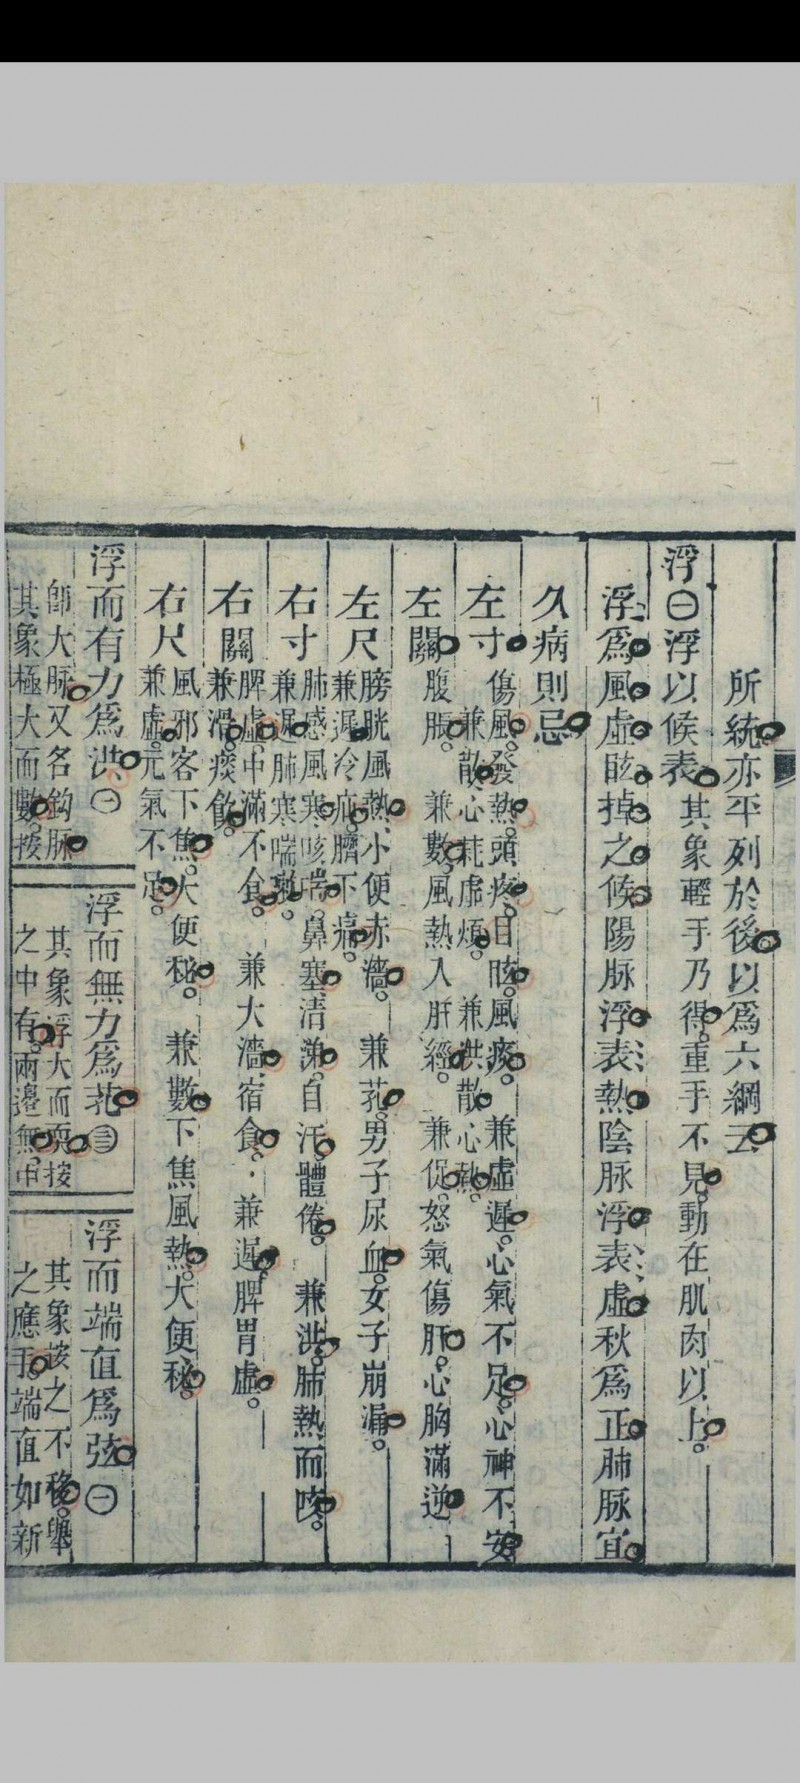 所統亦平列於後以爲六綱云
浮㊀浮以候表其象輕手乃得重手不見動在肌肉以上
浮爲風虛眩掉之候陽脉浮表熱陰脉浮表虛秋爲正肺脉宜
久病則忌
左寸傷風發熱頭疼目眩風痰 兼虛遲心氣不足心神不安
兼散心耗虛煩 兼洪散心熱
左關腹脹 兼數風熱入肝經 兼促怒氣傷肝心胸滿逆
左尺膀胱風熱小便赤濇 兼芤男子尿血女子崩漏
兼遲冷疝臍下痛
右寸肺感風寒咳喘鼻塞清涕自汗體倦 兼洪肺熱而咳
兼遲肺寒喘嗽
右關脾虛中滿不食 兼大濇宿食 兼遲脾胃虛
兼滑痰飲
右尺風邪客下焦大便秘 兼數下焦風熱大便秘
兼虛元氣不足
浮而有力爲洪㊀
卽大脉又名鈎脉
其象極大而數按
浮而無力爲芤㊂
其象浮大而耎按
之中有兩邊無中
浮而端直爲弦㊀
其象按之不移舉
之應手端直如新